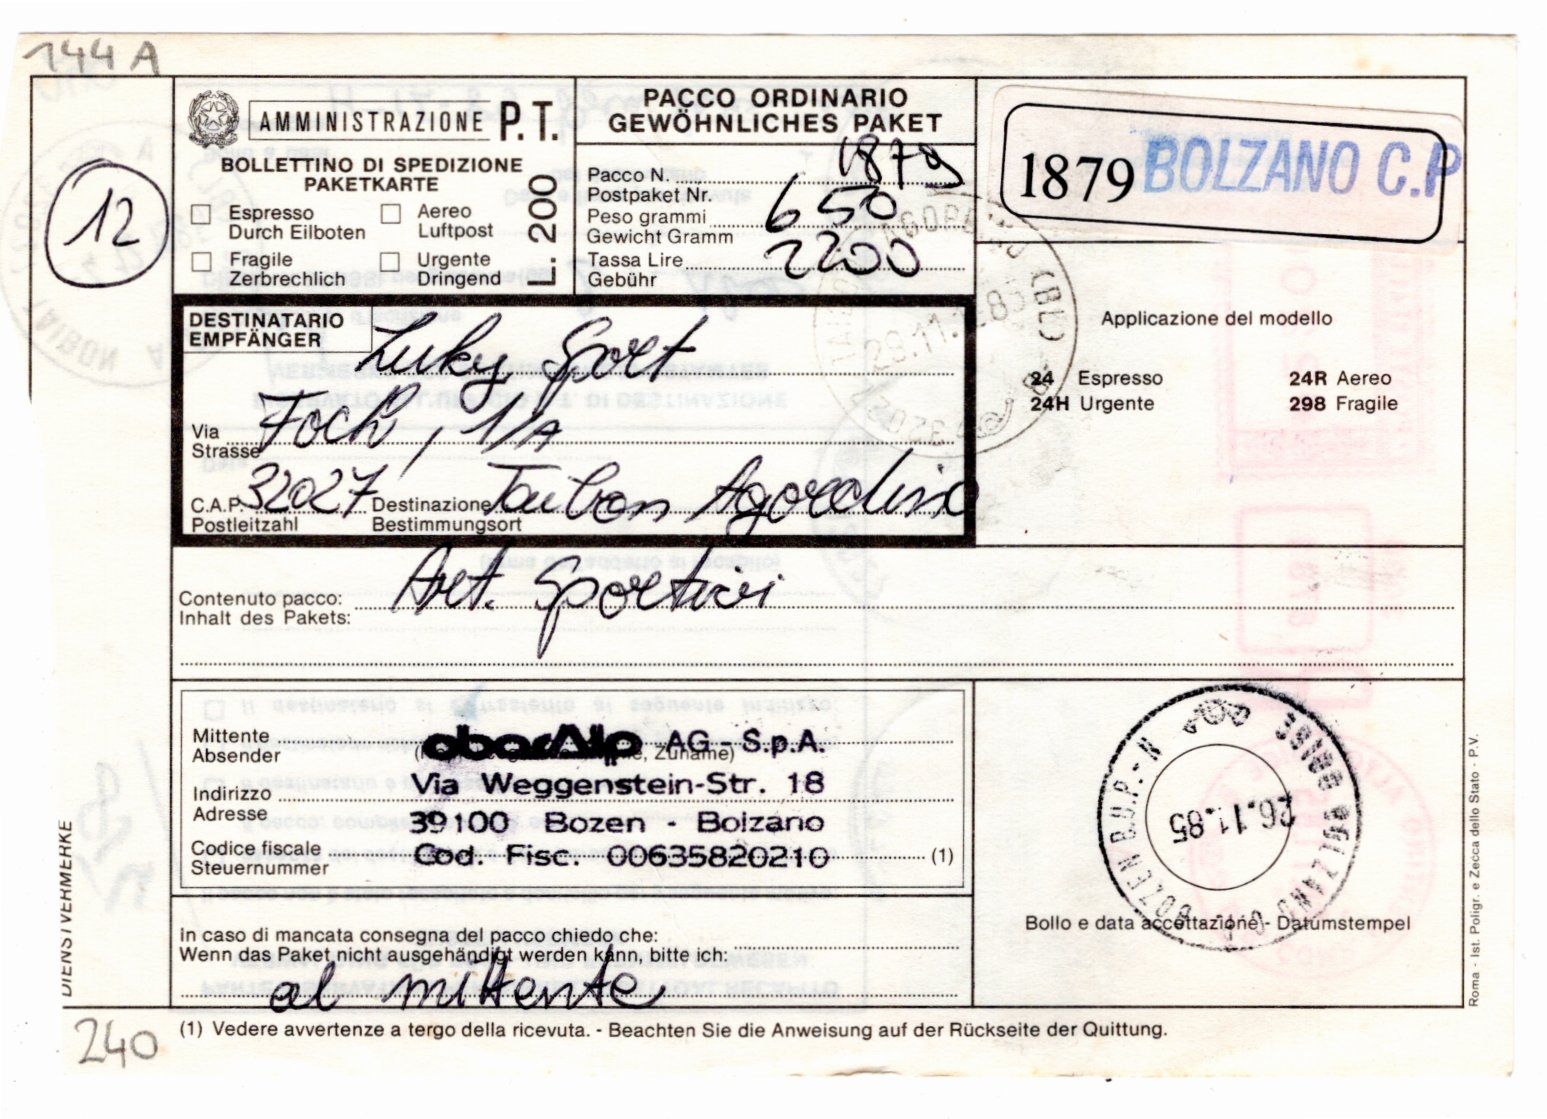 144 A
AMMINISTRAZIONE P.T.
BOLLETTINO DI SPEDIZIONE
PAKETKARTE
Espresso
Durch Eilboten
Aereo
Luftpost
Fragile
Zerbrechlich
Urgente
Dringend
L. 200
PACCO ORDINARIO
GEWÖHNLICHES PAKET
Pacco N. 1879
Postpaket Nr.
Peso grammi 650
Gewicht Gramm
Tassa Lire 2200
Gebühr
1879 BOLZANO C.P
12
DESTINATARIO
EMPFÄNGER
Luky Sport
Via Foch, 1/A
Strasse
C.A.P. 32027 Destinazione Taibon Agordino
Postleitzahl Bestimmungsort
29.11.1985
Applicazione del modello
24 Espresso 24R Aereo
24H Urgente 298 Fragile
Contenuto pacco: Art. Sportivi
Inhalt des Pakets:
Mittente
Absender
oberAlp AG - S.p.A.
, Zuname)
Indirizzo
Adresse
Via Weggenstein-Str. 18
39100 Bozen - Bolzano
Codice fiscale
Steuernummer
Cod. Fisc. 00635820210 (1)
26.11.85
BOZEN B.U.P.-N
Bollo e data accettazione - Datumstempel
In caso di mancata consegna del pacco chiedo che:
Wenn das Paket nicht ausgehändigt werden kann, bitte ich:
al mittente
DIENSTVERMERKE
Roma - Ist. Poligr. e Zecca dello Stato - P.V.
240
(1) Vedere avvertenze a tergo della ricevuta. - Beachten Sie die Anweisung auf der Rückseite der Quittung.